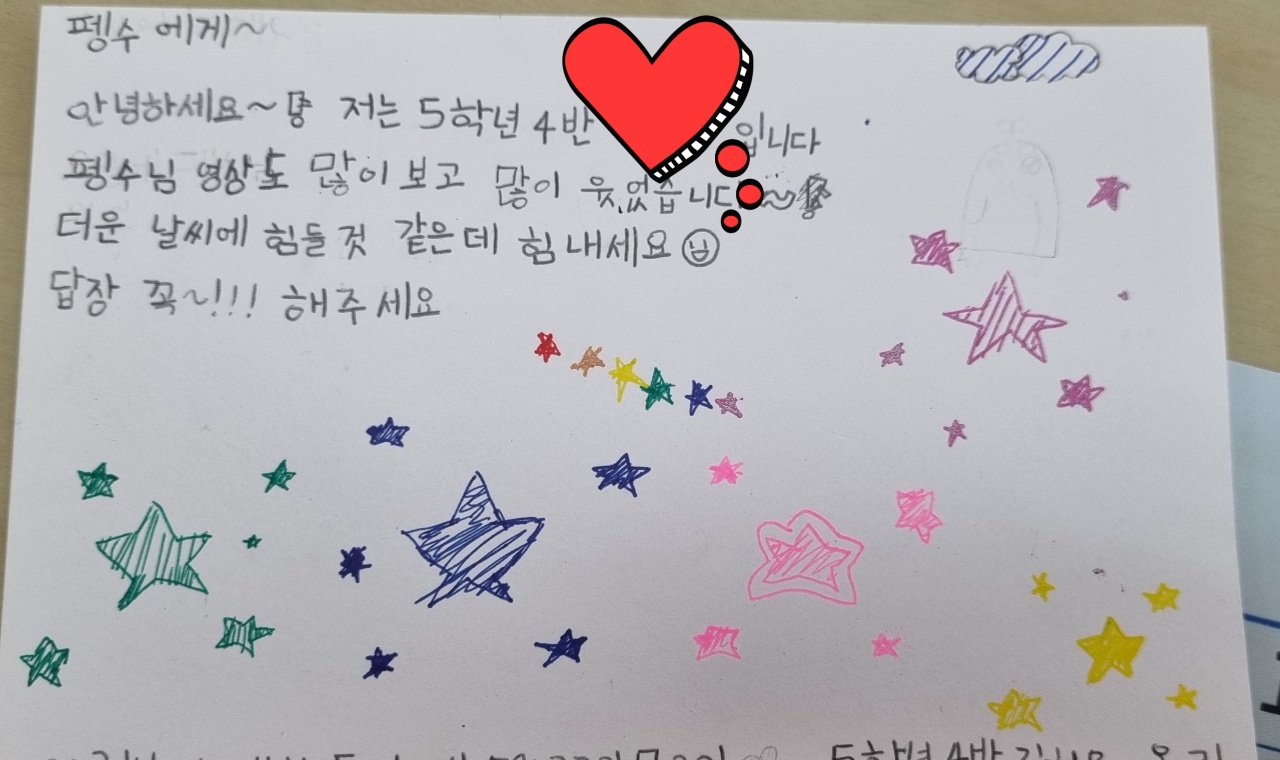 펭수에게~
안녕하세요~ 저는 5학년 4반 입니다
펭수님 영상도 많이 보고 많이 웃었습니다~
더운 날씨에 힘들것 같은데 힘내세요
답장 꼭~!!! 해주세요
5학년 4반